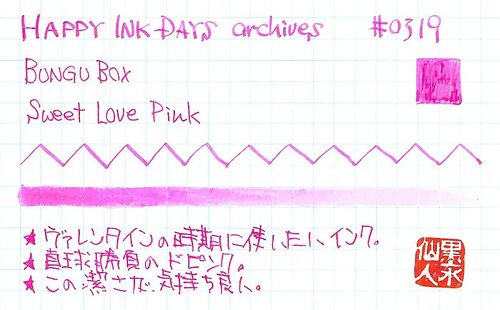 HAPPY INK DAYS archives #0319
BUNGU BOX
Sweet Love Pink
★ ヴァレンタインの時期に使いたいインク。
★ 直球勝負のドピンク。
★ この潔さが気持ち良い。
墨水
仙人